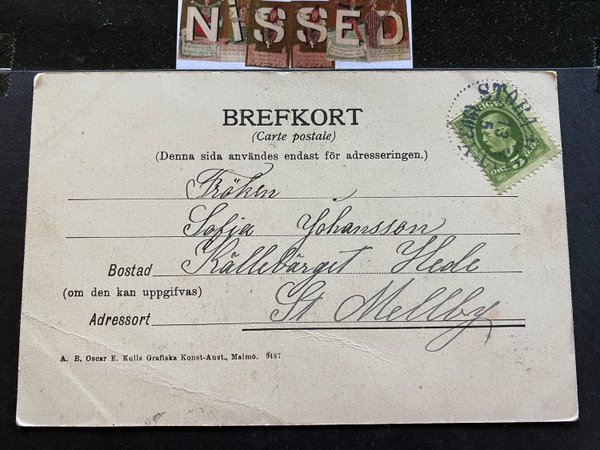 NISSED
BREFKORT
(Carte postale)
(Denna sida användes endast för adresseringen.)
Fröken
Sofia Johansson
Bostad Källebärget Hede
(om den kan uppgifvas)
Adressort St Mellby
A. B. Oscar E. Kulls Grafiska Konst-Anst., Malmö. 9487